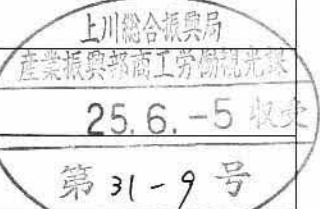 上川総合振興局
産業振興部商工労働観光課
25.6.-5 収受
第31-9号